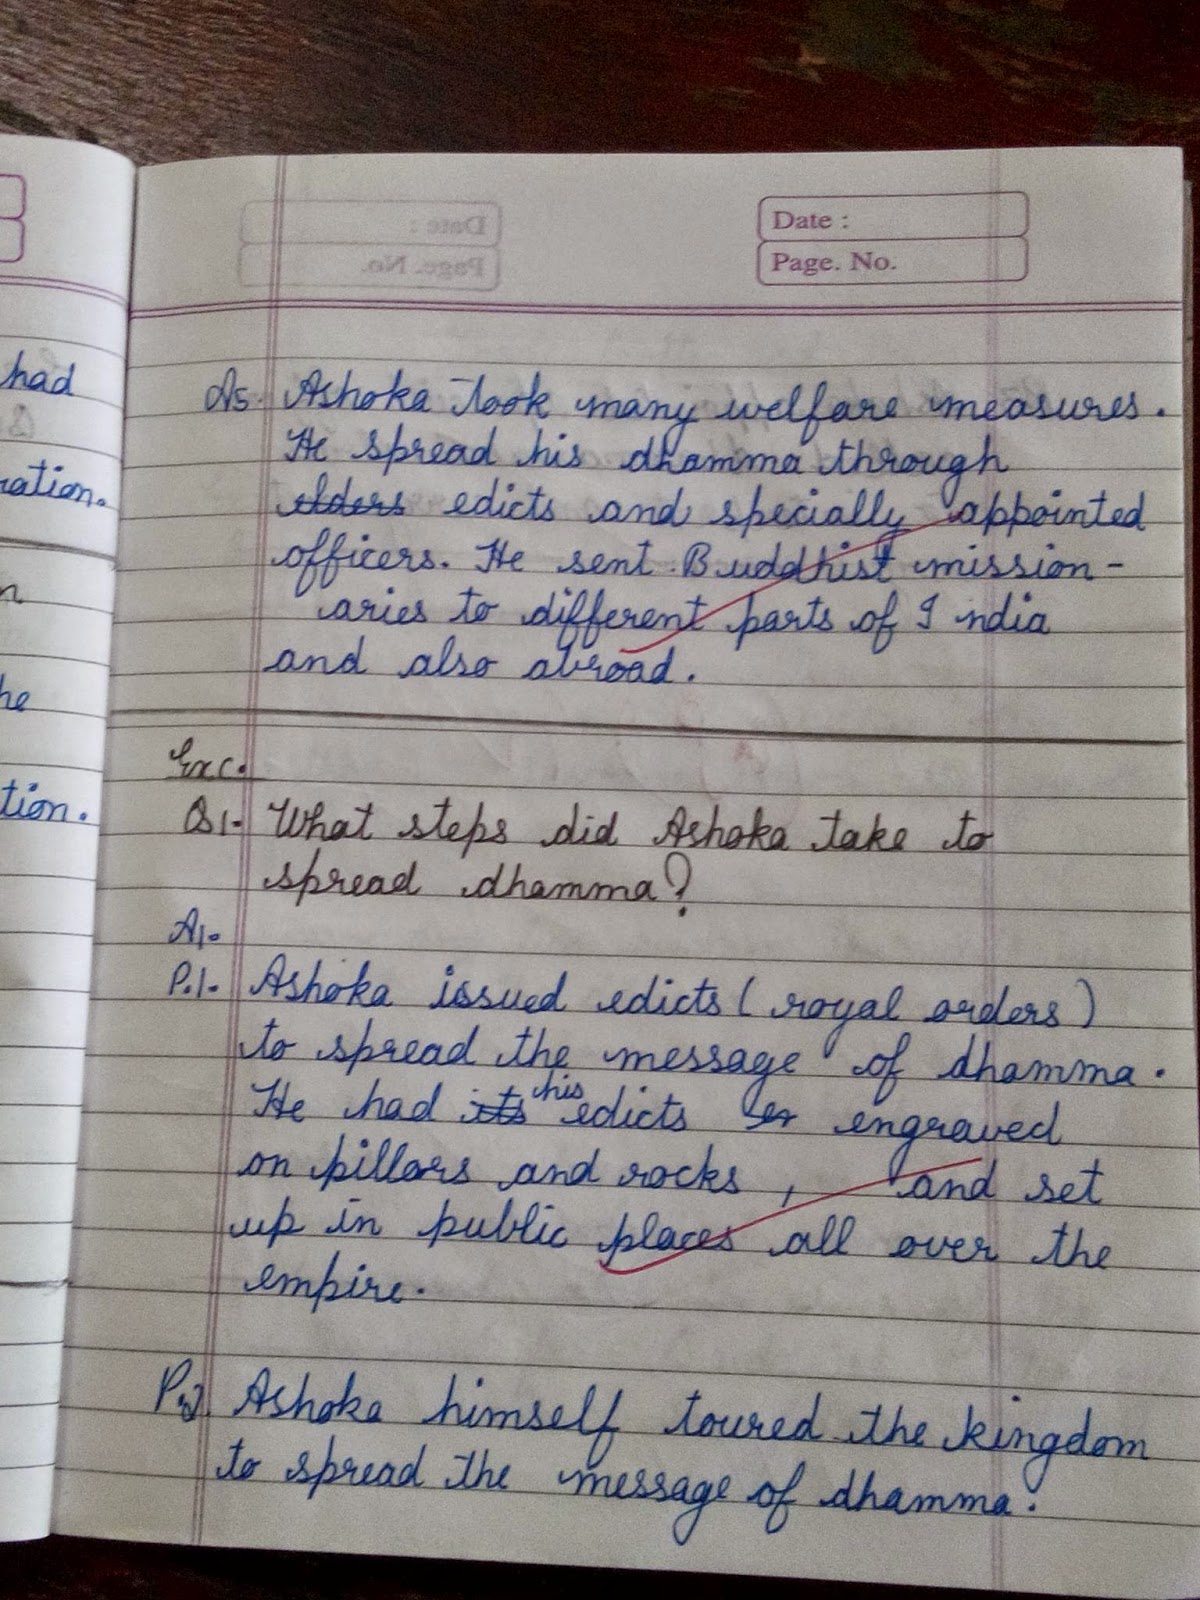 had
ration.
n
he
tion.
Date :
Page. No.
Date :
Page. No.
A5. Ashoka took many welfare measures.
He spread his dhamma through
elders edicts and specially appointed
officers. He sent Buddhist mission-
aries to different parts of India
and also abroad.
Exc.
Q1. What steps did Ashoka take to
spread dhamma?
A1.
P.1. Ashoka issued edicts ( royal orders )
to spread the message of dhamma.
He had its his edicts er engraved
on pillars and rocks , and set
up in public places all over the
empire.
P.2. Ashoka himself toured the kingdom
to spread the message of dhamma.